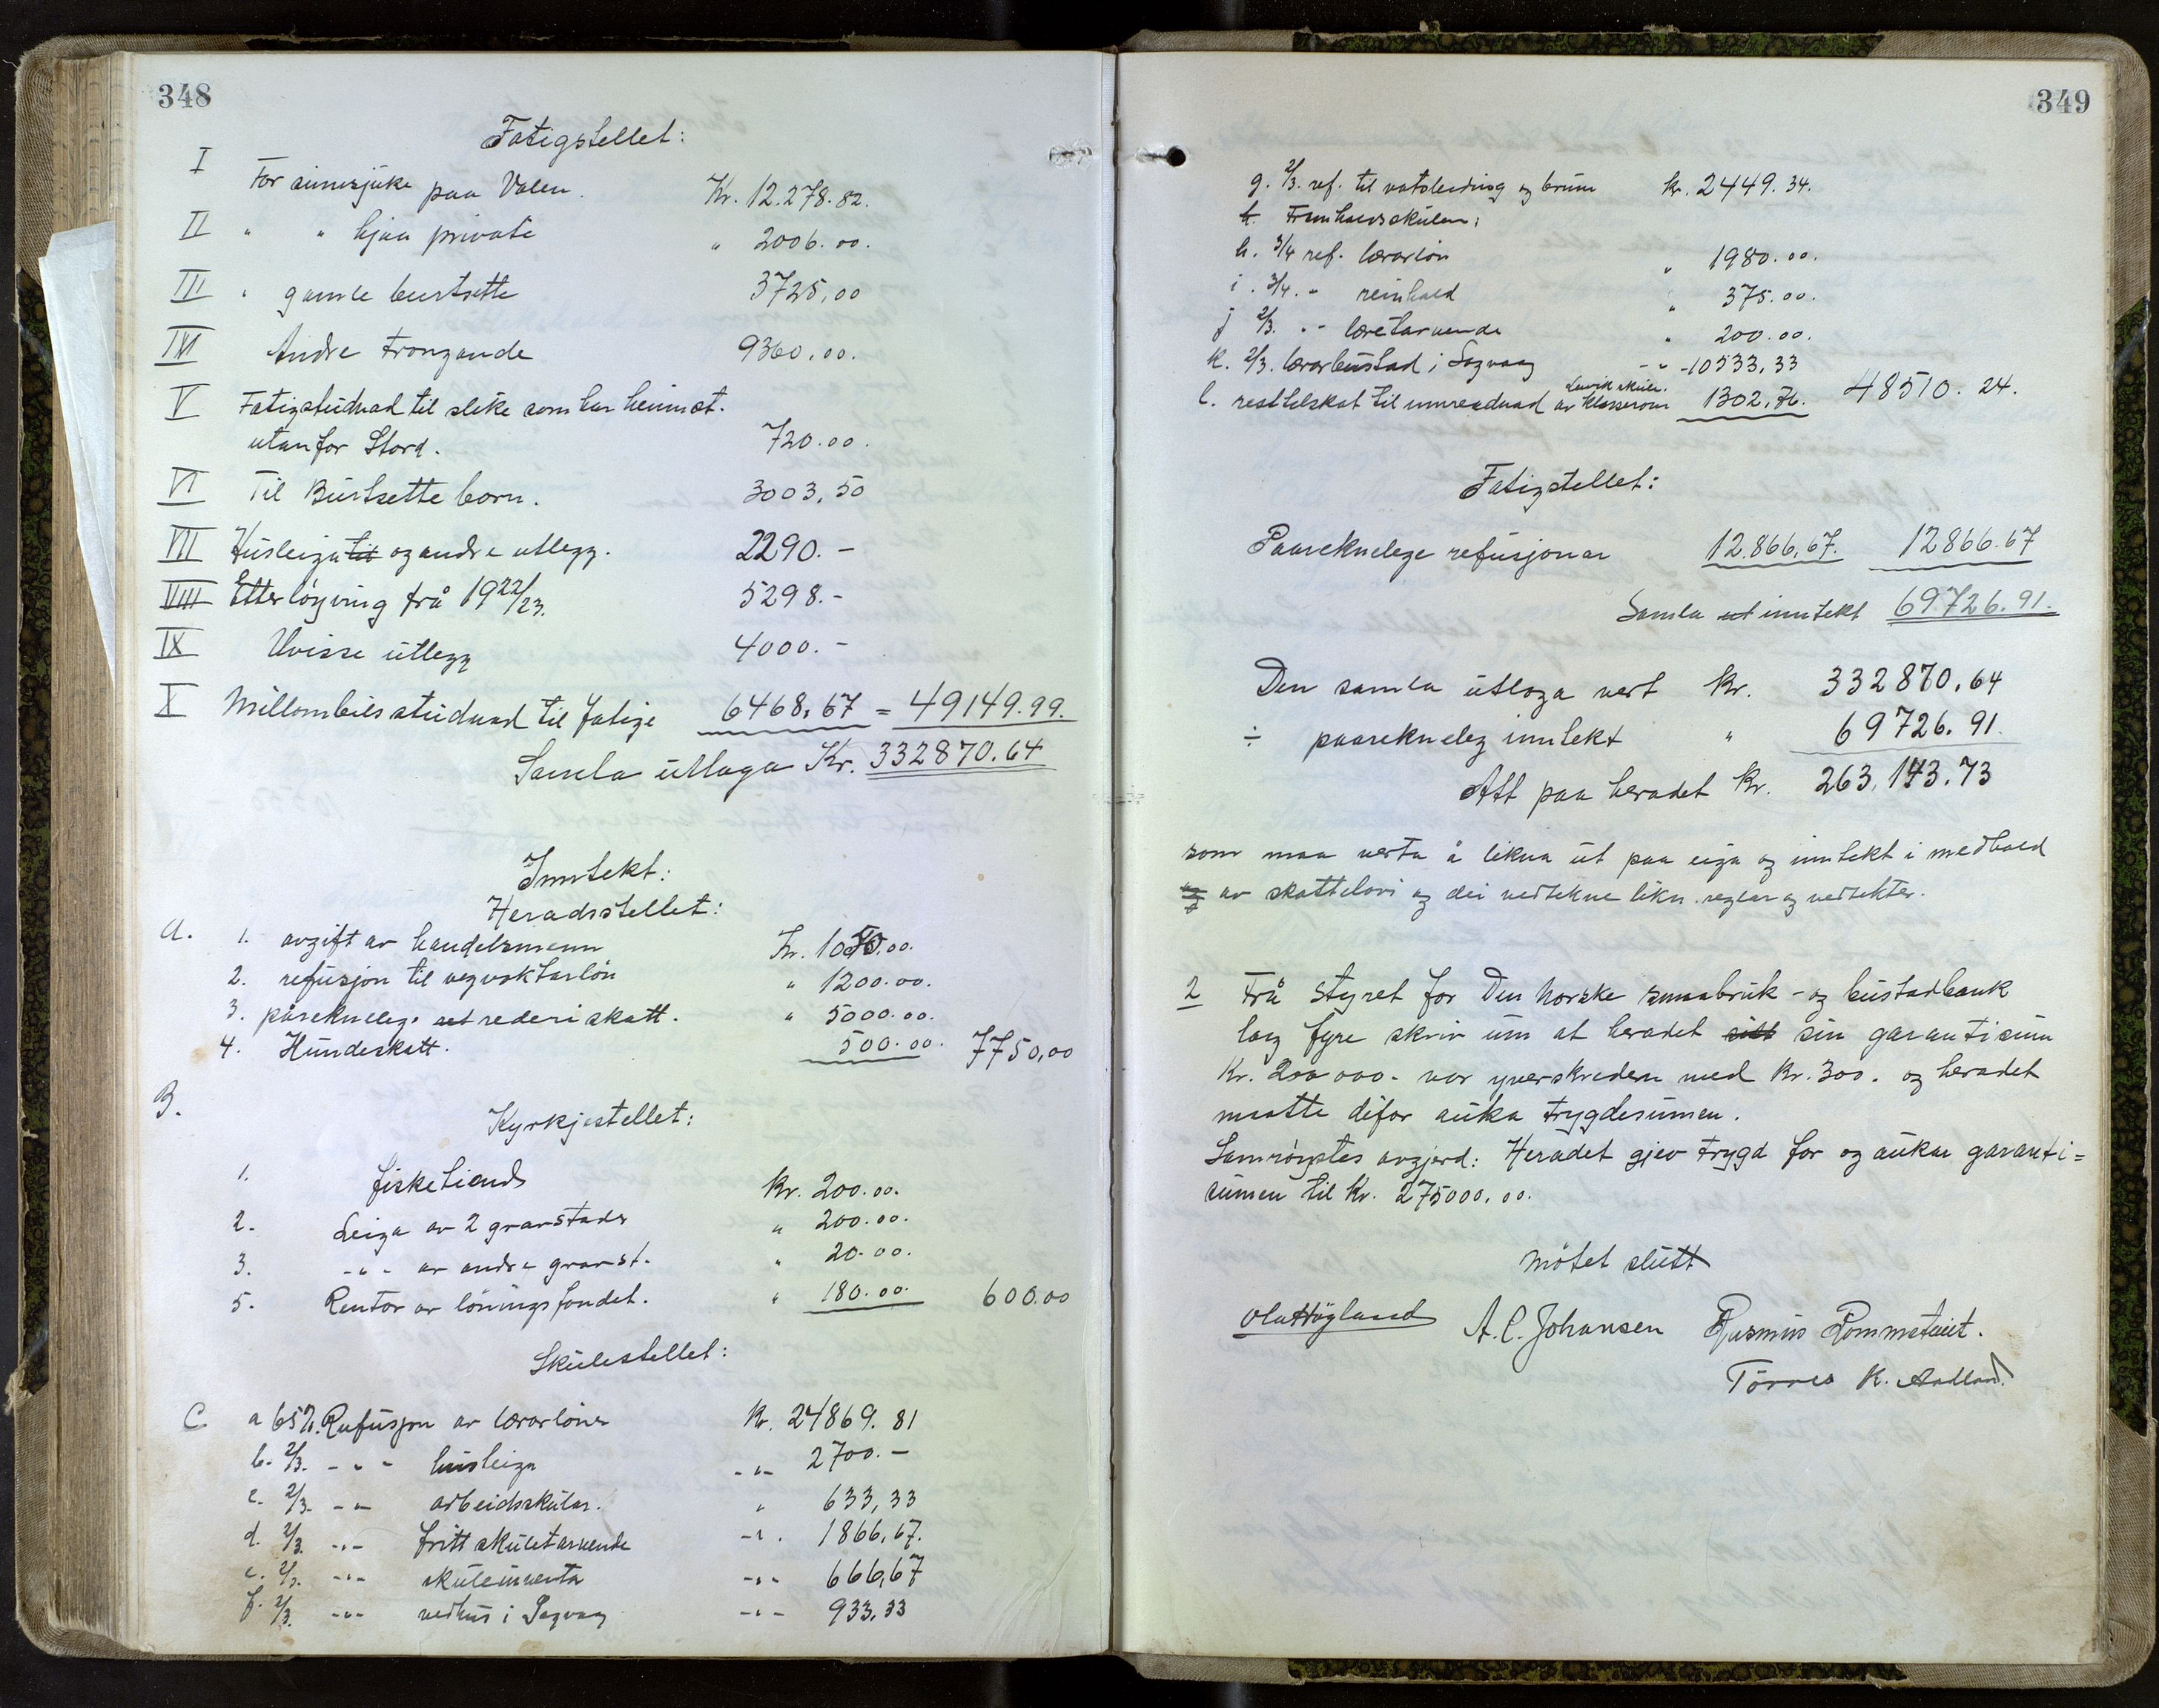 348
Fatigstellet:
I For sinnsjuke paa Valen. Kr. 12.278.82.
II " " hjaa private " 2006.00.
III " gamle burtsette 3725,00
IV Andre trongande 9360,00.
V Fatigstudnad til slike som har heimst.
utanfor Stord. 720.00.
VI Til Burtsette born. 3003,50
VII Husleiga til og andre utlegg. 2290.-
VIII Etterløyving frå 1922/23. 5298.-
IX Uvisse utlegg 4000.-
X Millombils studnad til fatige 6468,67 = 49149.99.
Samla utlaga Kr. 332870.64
Inntekt:
Heradsstellet:
A. 1. avgift av handelsmenn Kr. 1050.00.
2. refusjon til vegvaktarløn " 1200.00.
3. påreknelege set rederiskatt. " 5000.00.
4. Hundeskatt. 500.00. 7750,00
B.
Kyrkjestellet:
1. fisketiend Kr. 200.00.
2. Leiga av 2 gravstader " 200.00.
3. -"- av andre gravst. " 20.00.
5. Rentor av løningsfondet. " 180.00. 600.00
Skulestellet:
C. a 65%. Refusjon av lærarløner Kr. 24869.81
b. 2/3. -"- husleiga -"- 2700.-
c. 2/3. -"- arbeidsskular. " 633,33
d. 2/3. -"- fritt skuletarvende -"- 1866,67.
e. 2/3. -"- skuleinventa -"- 666,67
f. 2/3. -"- vedhus i Sagvaag -"- 933,33
349
g. 2/3. ref. til vatsleidning og brunn kr. 2449.34.
h. Framhaldsskulen:
h. 3/4 ref. lærarløn " 1980.00.
i. 3/4. " reinhald " 375.00.
j 2/3. -"- læretarvende " 200.00.
k. 2/3. lærarbustad i Sagvaag -"- 10533,33
Levik skule.
l. resttilskot til innreidnad av klasserom 1302,76. 48510.24.
Fatigstellet:
Paareknelege refusjonar 12.866,67. 12866.67
Samla ut inntekt 69726.91.
Den samla utloga vert Kr. 332870,64
÷ paarekneleg inntekt " 69726.91.
Att paa heradet Kr. 263,143.73
som maa verta å likna ut paa eiga og inntekt i medhald
og av skattelovi og dei vedtekne likn. reglar og vedtekter.
2 Frå styret for Den norske smaabruk- og bustadbank
lag fyre skriv um at heradet sitt sin garantisum
Kr. 200000.- var yverskreden med Kr. 300. og heradet
maatte difor auka trygdesumen.
Samrøystes avgjerd: Heradet gjev trygd for og aukar garanti=
sumen til Kr. 275000,00.
Møtet slutt
Ola Høyland A. C. Johansen Rasmus Rommetveit.
Tørres K. Aadland.